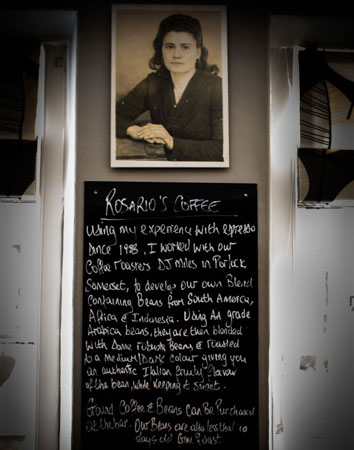 ROSARIO'S COFFEE
Using my experience with espresso
Since 1988, I worked with our
Coffee roasters DJ Miles in Porlock
Somerset, to develop our own Blend
Containing Beans from South America,
Africa & Indonesia. Using AA grade
Arabica beans, they are then blended
with Some robusta Beans & roasted
to a medium/dark colour giving you
an authentic Italian fruity flavour
of the bean, while keeping it sweet.
Ground Coffee & Beans Can Be Purchased
at the bar. Our Beans are also less than 10
days old from Roast.